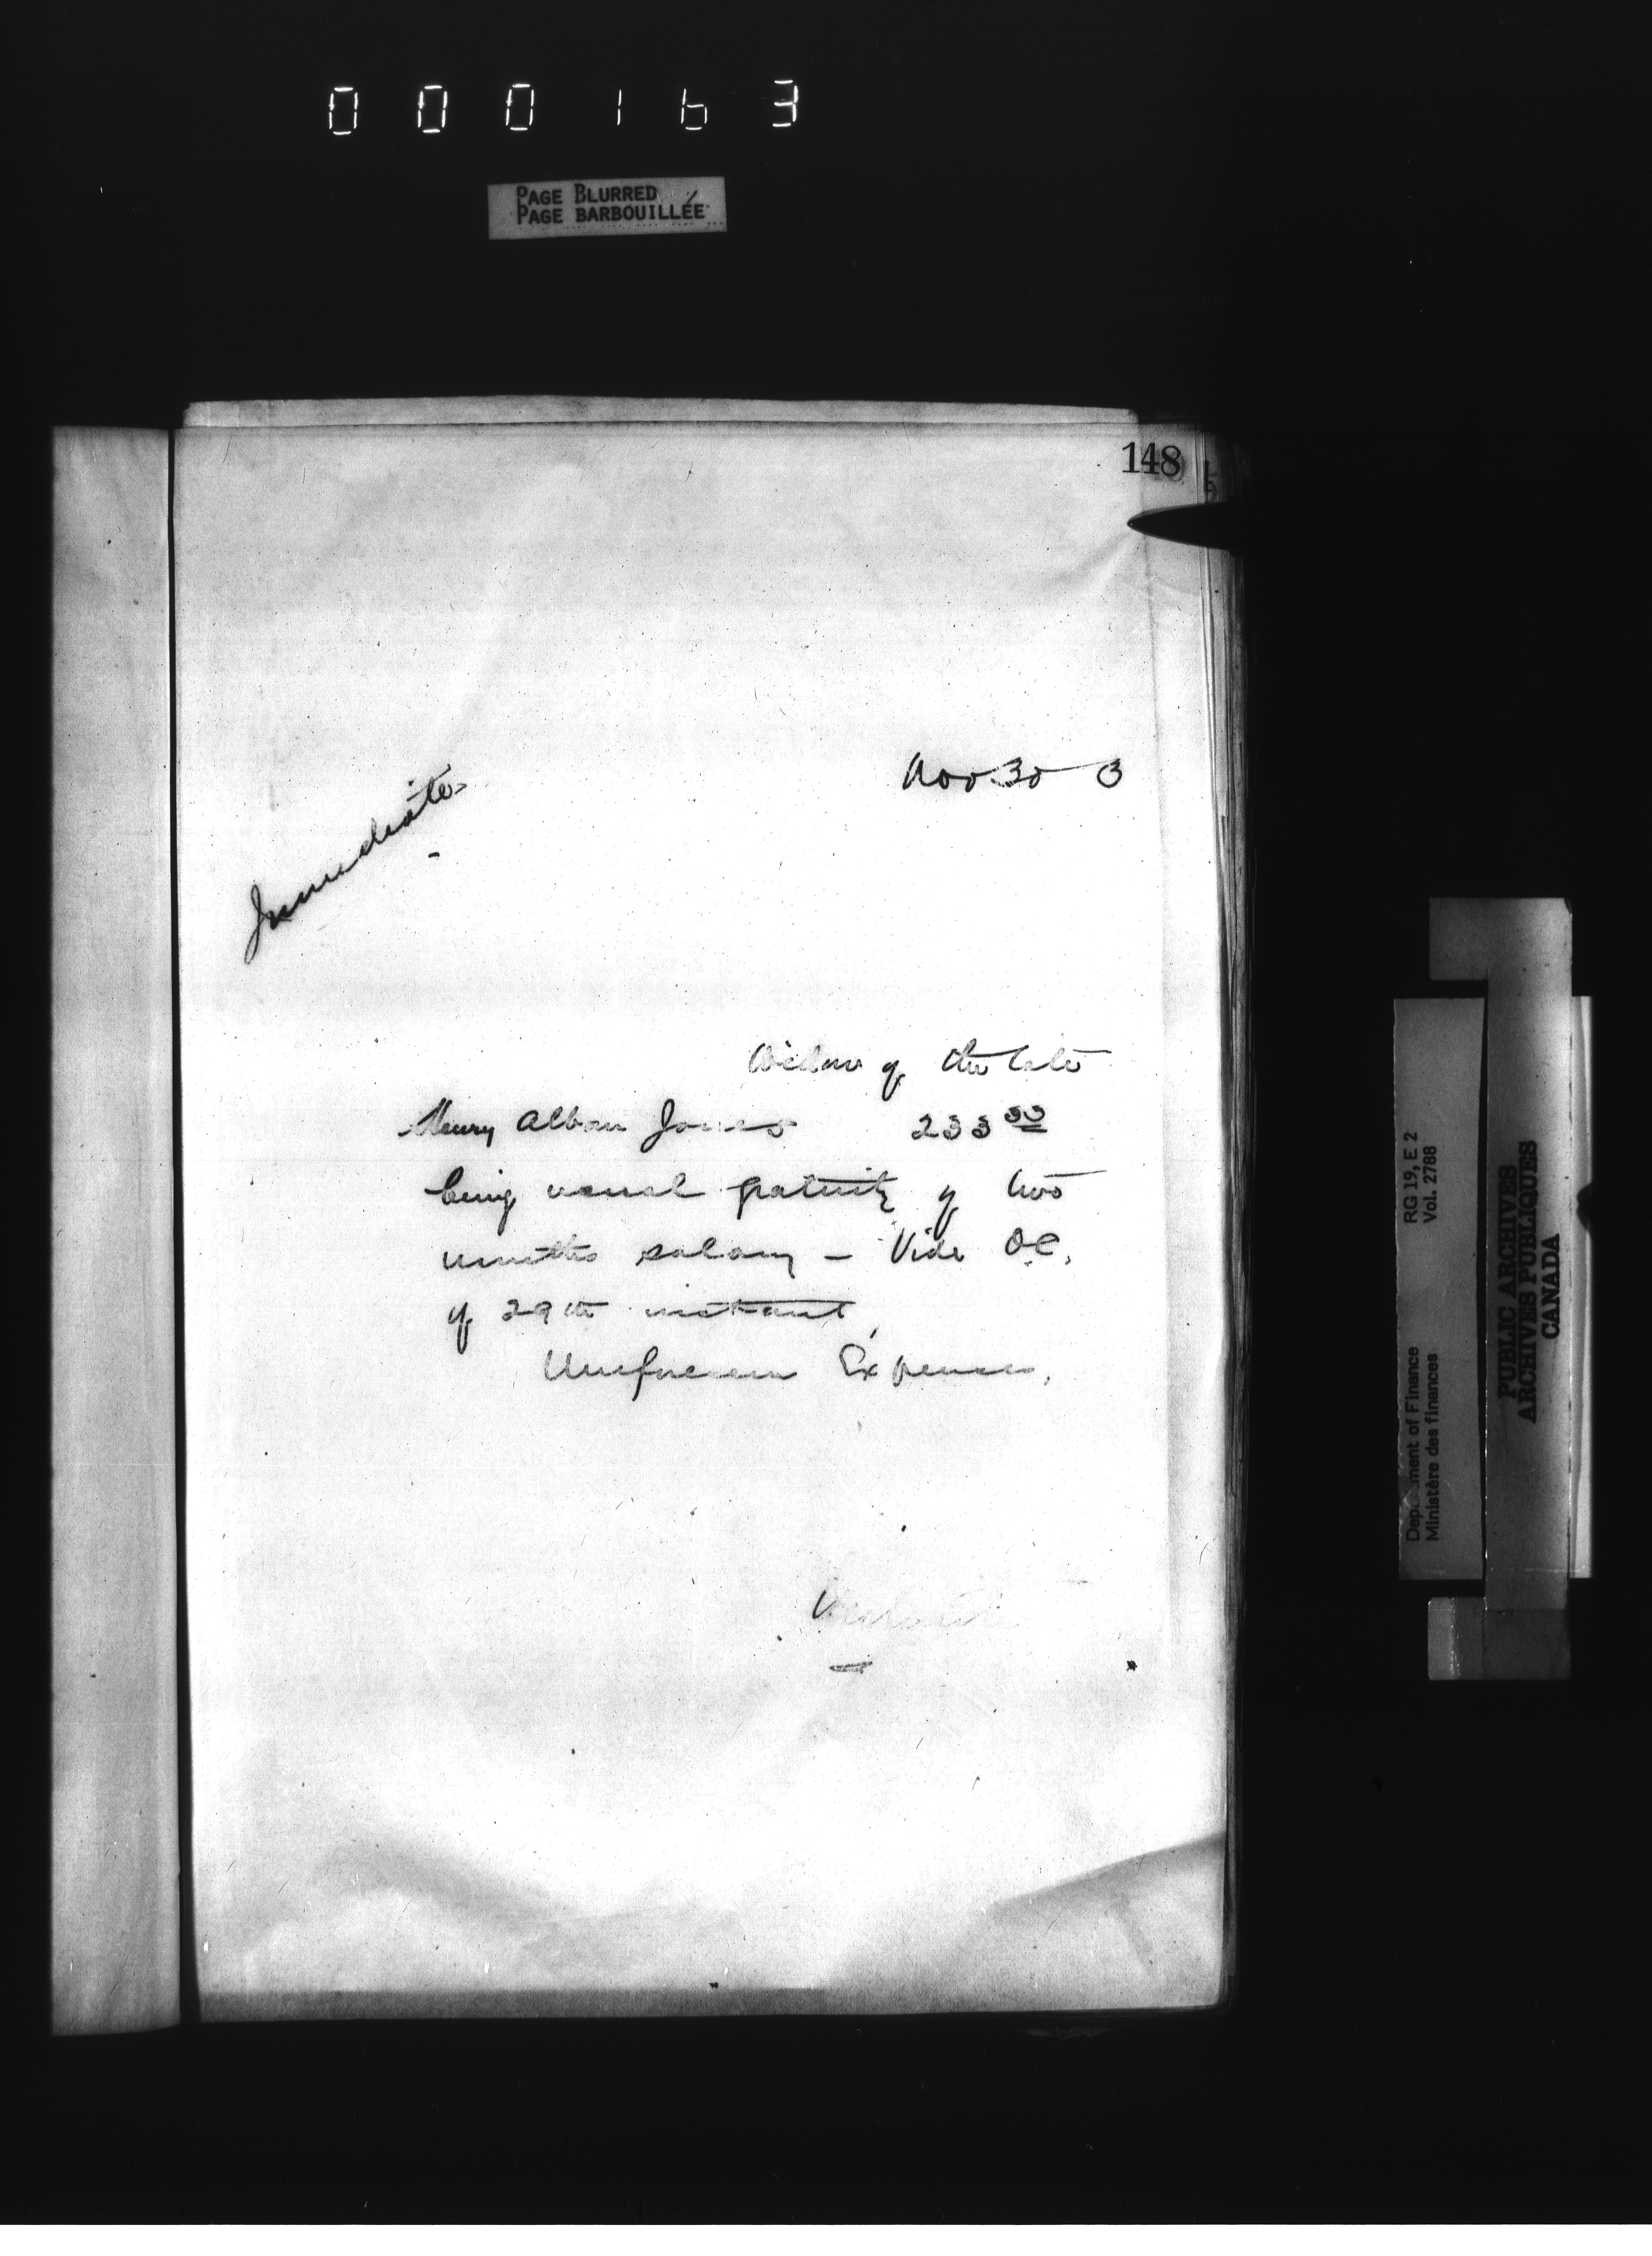 000163
PAGE BLURRED
PAGE BARBOUILLÉE
148
Nov 30 3
Immediate
Widow of the late
Henry Alban Jones 233 33
being usual gratuity of two
months salary - Vide O.C.
of 29th instant,
Unforeseen Expenses,
RG 19, E 2
Vol. 2788
Department of Finance
Ministère des finances
PUBLIC ARCHIVES
ARCHIVES PUBLIQUES
CANADA